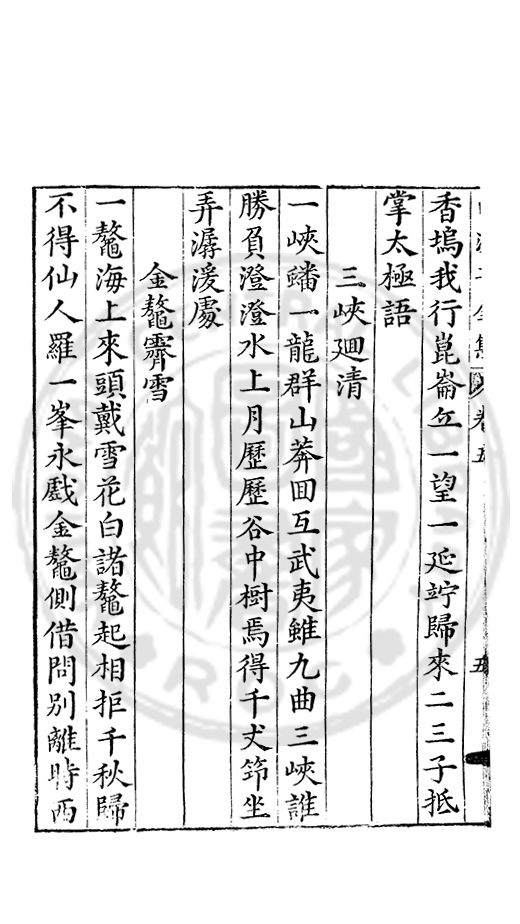 香塢我行崑崙𠫵一望一延竚歸來二三子抵
掌太極語
三峽廻清
一峽蟠一龍群山莽囬互武夷雖九曲三峽誰
勝負澄澄水上月歷歷谷中樹焉得千丈笻坐
弄潺湲處
金鼇霽雪
一鼇海上來頭戴雪花白諸鼇起相拒千秋歸
不得仙人羅一峯永戲金鼇側借問別離時西